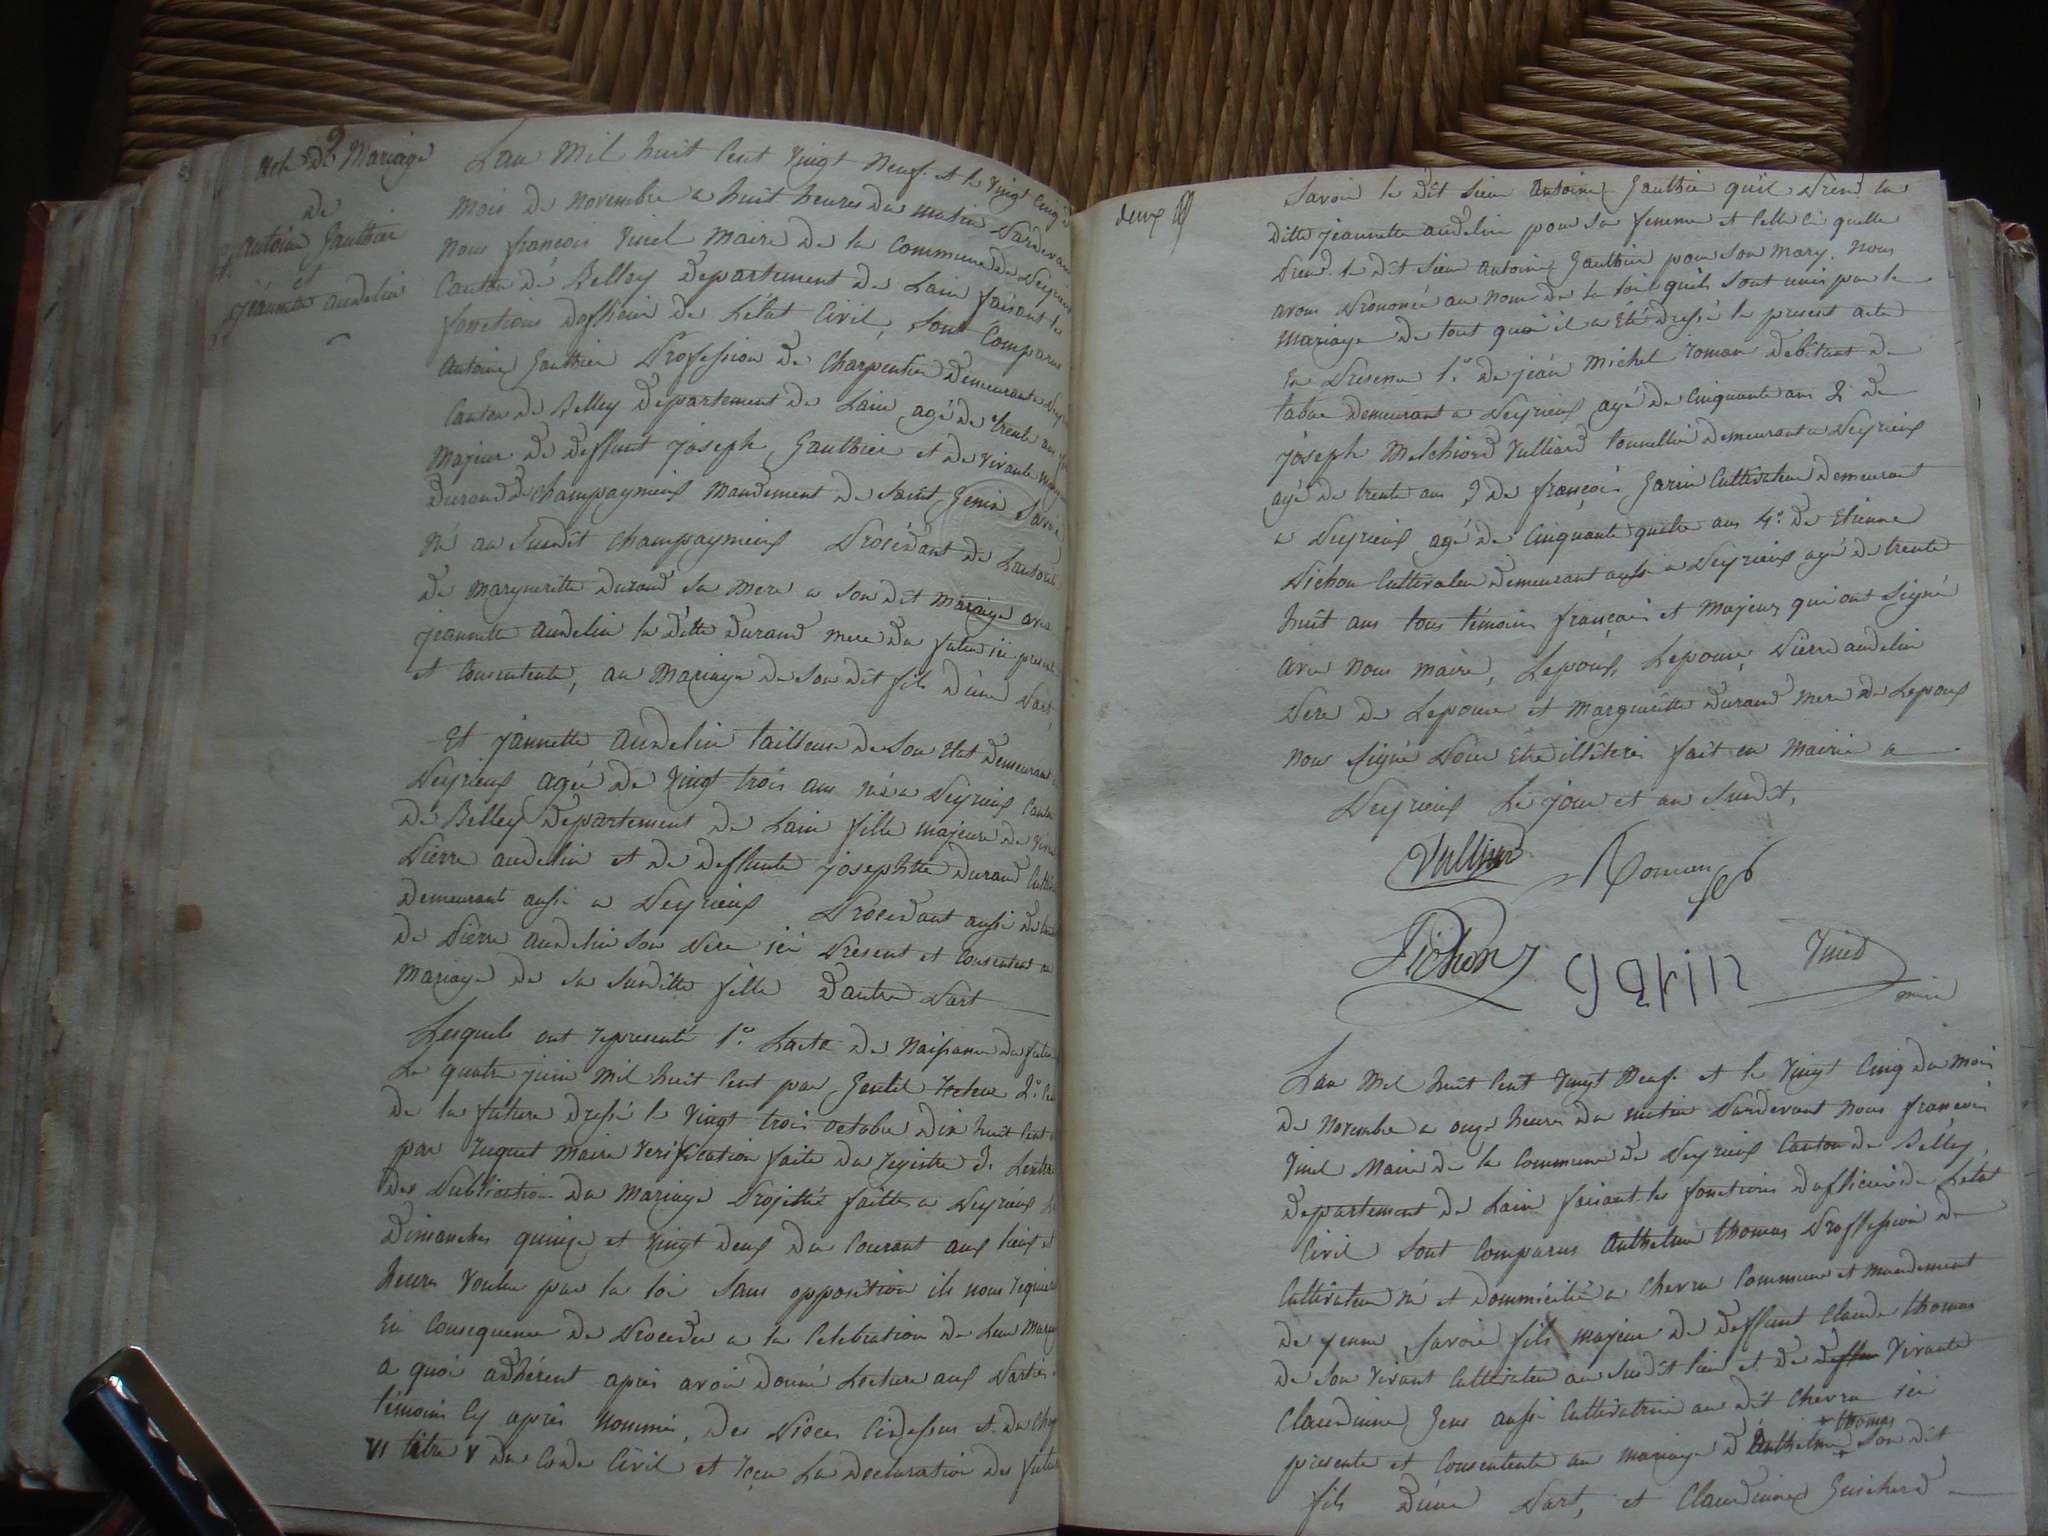 2
Acte de Mariage
de
Antoine Gauthier
et
jeannette audelin
Lan Mil huit Cent Vingt Neuf et le Vingt Cinq d
mois de novembre a huit heures du matin Pardevant
nous francois Vuiel Maire de la Commune de Peyrieux
Canton de Belley departement de Lain faisant les
fonctions dofficier de Létat Civil, Sont Comparus
Antoine Gauthier Profession de Charpentier demeurant a Peyr
Canton de Belley departement de Lain agé de trente ans
Majeur de deffunt joseph Gauthier et de Vivante
durand de Champagnieux Mandement de Saint Genix Savoie
né au Susdit Champagnieux Procédant de Lautorité
de Margueritte durand Sa Mere a Son dit Mariage avec
jeannette audelin la ditte durand mere du futur ici presente
et Consentente, au Mariage de Son dit fils dune Part,
Et jannette audelin tailleuse de Son Etat demeurant
Peyrieux agée de Vingt trois ans née a Peyrieux Canton
de Belley departement de Lain fille majeure de Vivant
Pierre audelin et de deffunte josephtte durand
demeurant aussi a Peyrieux Procédant aussi de
de Pierre audelin Son Pere ici Present et Consentent au
mariage de Sa Susditte fille dautre Part
Lesquels ont representé 1.o Lacte de Naissance du futur
Le quatre juin Mil huit Cent par Gentil recteur 2.o
de la future dressé le Vingt trois octobre dix huit Cent
par juquet Maire Vérification faite du registre 3.
des Publication du Mariage Projetté faittes a Peyrieux
dimanches quinze et Vingt deux du Courant aux lieux et
heures Voulu par la loi Sans opposition ils nous requiere
En Consequence de Proceder a la Celebration de Leur Mariage
a quoi adhérent après avoir donné Lecture aux Parties
témoins Cy après Nommés, des Pièces Cidessus et du Chap
VI titre V du Code Civil et reçu La declaration des futurs
deux
Savoir le dit Sieur Antoine Gauthier quil Prend la
ditte jeannette audelin pour Sa femme et Celle ci quelle
Prend le dit Sieur Antoine Gauthier pour Son Mary. Nous
avons Prononcé au Nom de la loi quils Sont unis par le
Mariage de tout quoi il a été dressé le present acte
En Presence 1.o de jean Michel roman debitant de
tabac demeurant a Peyrieux agé de Cinquante ans 2. de
joseph Melchiord Vulliard tonnellier demeurant a Peyrieux
agé de trente ans 3 de françois Garin Cultivateur demeurant
a Peyrieux agé de Cinquante quatre ans 4.o de Etienne
Pichon Cultivateur demeurant aussi a Peyrieux agé de trente
huit ans tous témoins françois et Majeurs qui ont Signé
avec Nous maire, Lepoux, Lepouse, Pierre audelin
Pere de Lepouse et Marguerite durand mere de Lepoux
Non Signé Pour Etre illiterés fait en Mairie a
Peyrieux Le jour et an Susdit,
Vulliard Romen
Pichon garin Vuiel
maire
Lan Mil huit Cent Vingt Neuf et le Vingt Cinq du Mois
de Novembre a onze heures du matin Pardevant Nous francois
Vuiel Maire de la Commune de Peyrieux Canton de Belley,
departement de Lain faisant les fonctions dofficier de Létat
Civil Sont Comparus Anthelme thomas Proffession de
Cultivateur né et dommicilié a Chevru Commune et mandement
de yenne, Savoie fils majeur de deffunt Claude thomas
de Son Vivant Cultivateur au Susdit lieu et de deffun Vivante
Claudinne Gens aussi Cultivatrice au dit Chevru ici
thomas
presente et Consentente au mariage d'Anthelme Son dit
fils dune Part, et Claudinne Guicherd